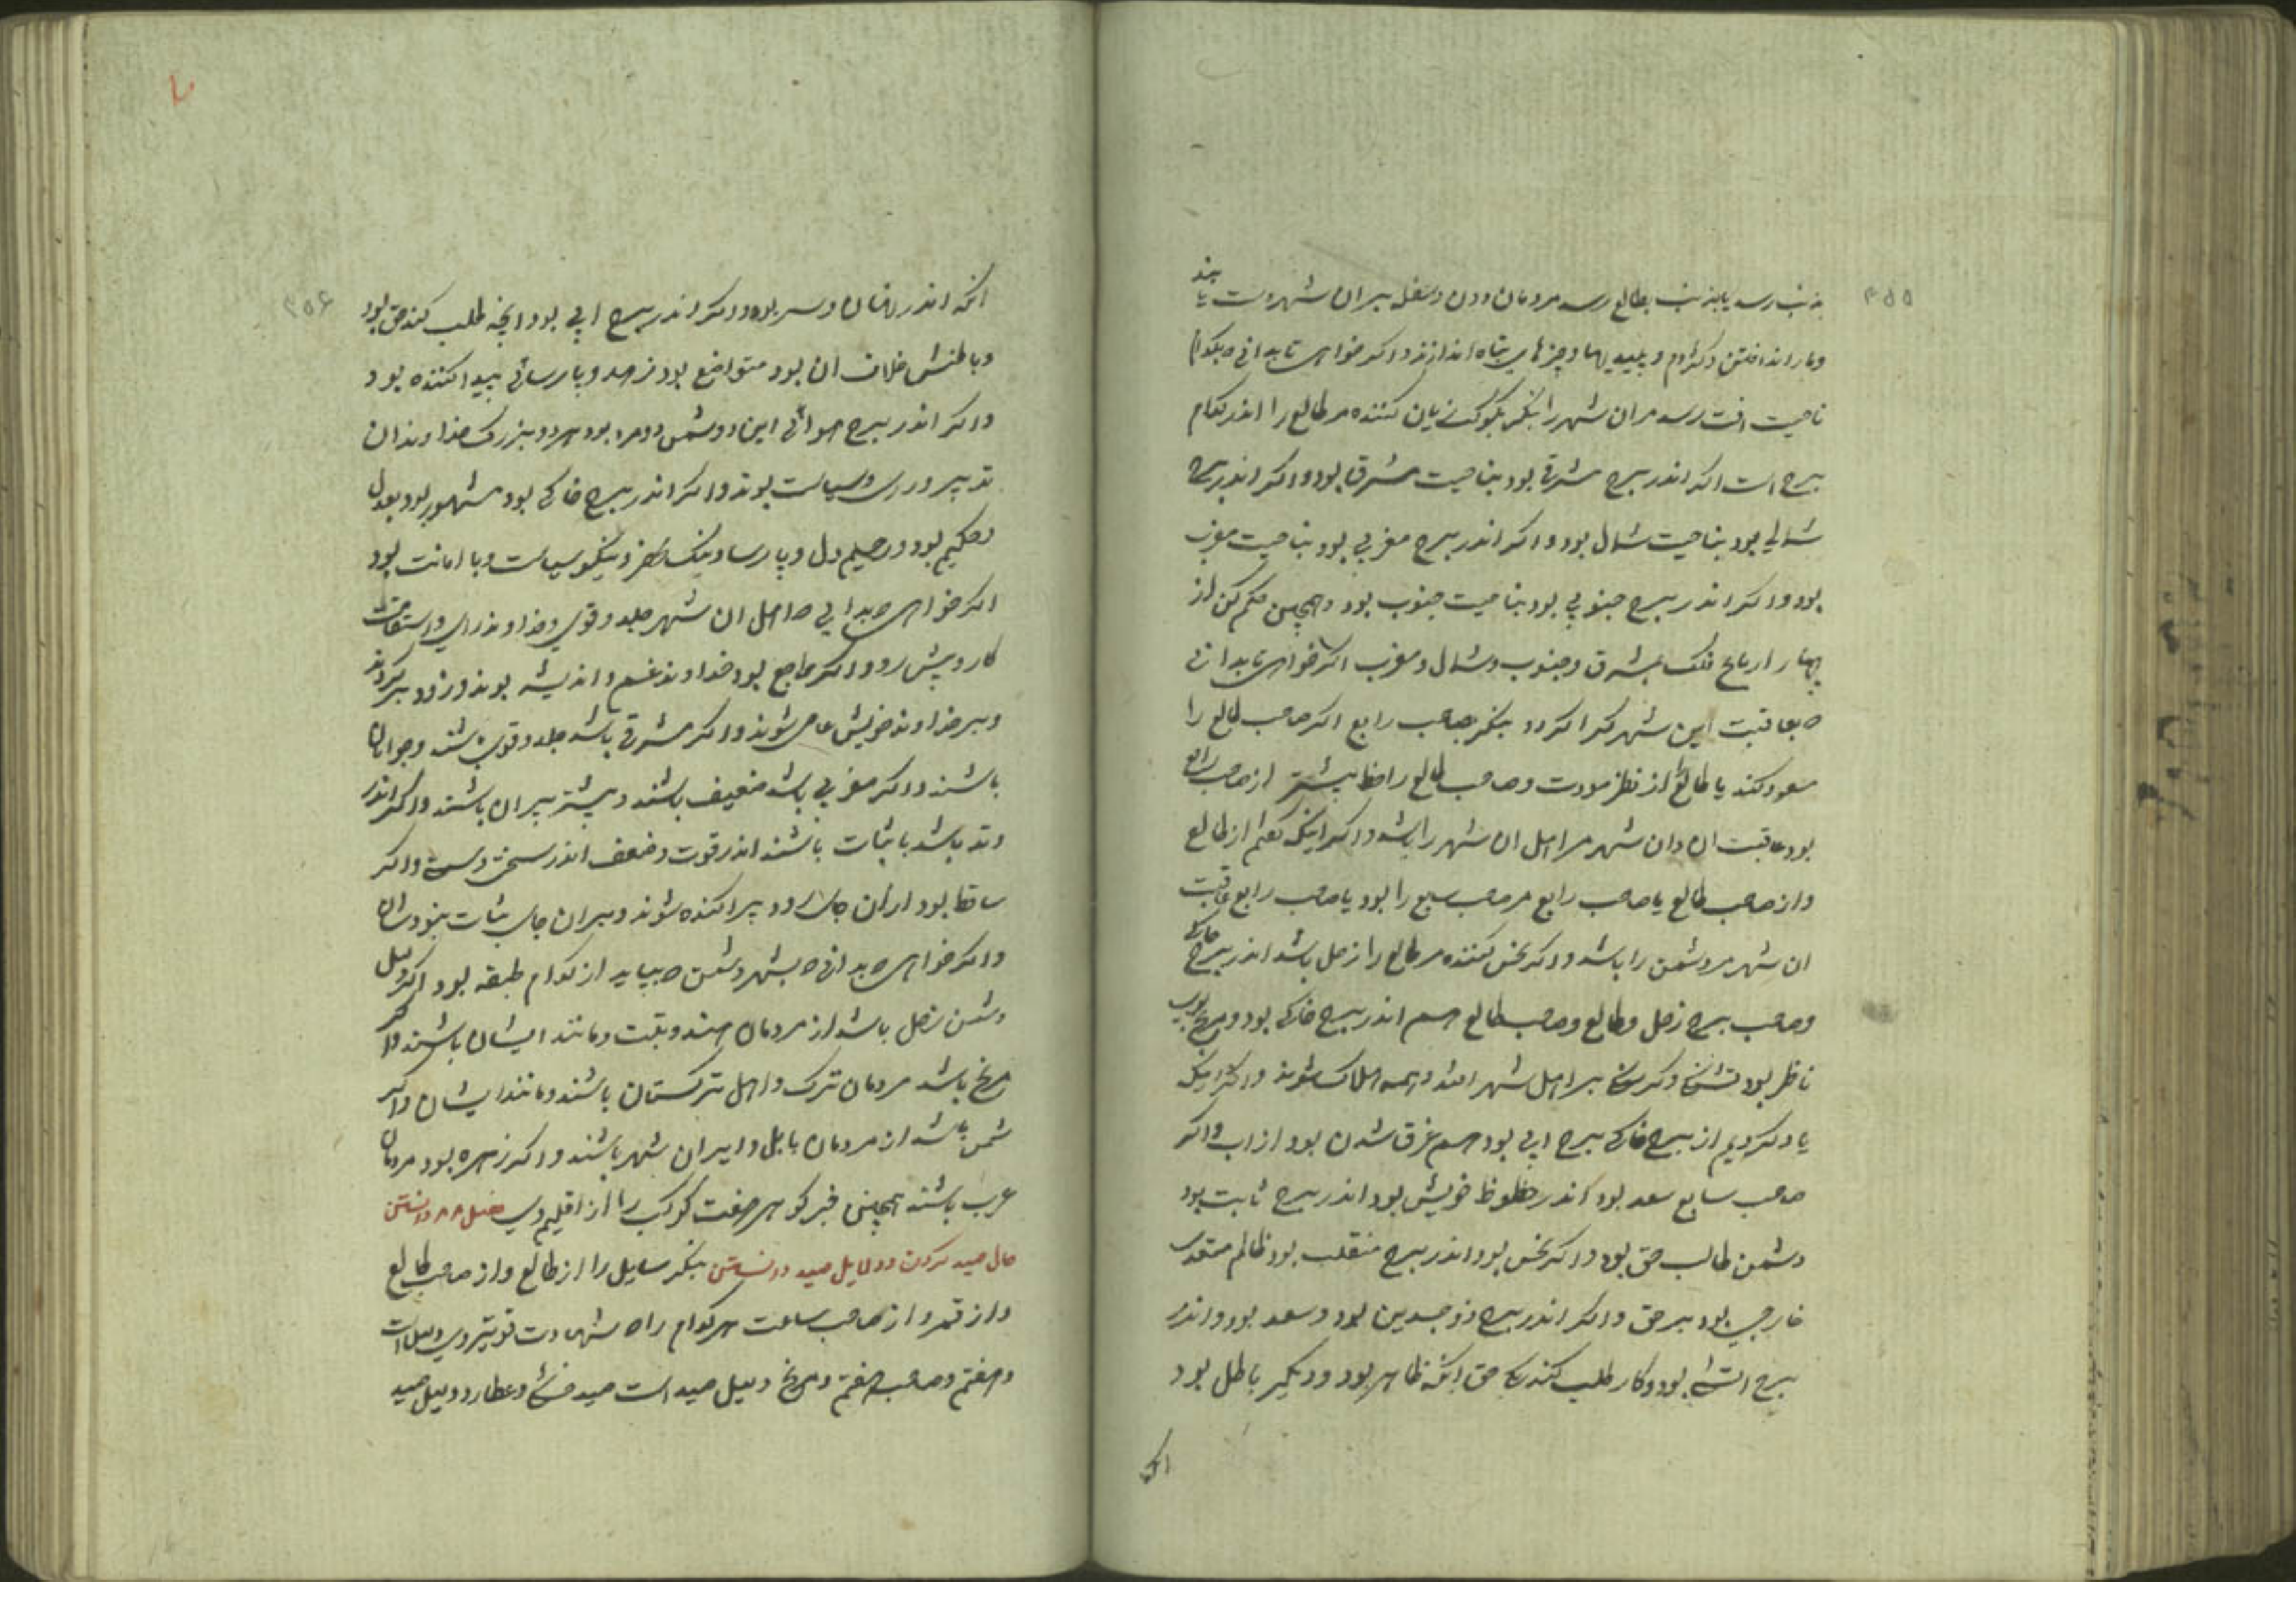 ۴۵۵
بذنب رسد یا بذنب بطالع رسد مردمان دون و سفل بیران شهر دست یابند
و مار انداختن و کژدم و پلیدیها و چیزهای تباه اندازند و اکر خواهی تا بدانی که بکدام
ناحیت افت رسد مران شهر را بنکر بکوکب زیان کننده مر طالع را اندر کدام
برج است اکر اندر برج شرقی بود بناحیت مشرق بود و اکر اندر برج
شمالی بود بناحیت شمال بود و اکر اندر برج مغربی بود بناحیت مغرب
بود و اکر اندر برج جنوبی بود بناحیت جنوب بود و همچنین حکم کن از
چهار ارباع فلک مشرق و جنوب و شمال و مغرب اکر خواهی تا بدانی
که بعاقبت این شهر کرا کردد بنکر بصاحب رابع اکر صاحب طالع را
مسعود کند یا طالع را از نظر مودت و صاحب طالع را حظ بیشتر از صاحب رابع
بود عاقبت ان دان شهر مر اهل ان شهر را باشد و اکر اینکه کفتم از طالع
و از صاحب طالع یا صاحب رابع مر صاحب سبع را بود یا صاحب رابع عاقبت
ان شهر مر دشمن را باشد و اکر نحس کننده مر طالع را زحل باشد اندر برج خاکی
و صاحب برج زحل و طالع و صاحب طالع هم اندر برج خاکی بود و مریخ بوی
ناظر بود و کرسنکی بر اهل شهر افتد و همه هلاک شوند و اکر اینکه
یاد کردیم از برج خاکی برج ابی بود هم غرق شدن بود از اب و اکر
صاحب سابع سعد بود اندر حظوظ خویش بود اندر برج ثابت بود
دشمن طالب حق بود و اکر نحس بود اندر برج منقلب بود ظالم متعدی
خارجی بود بر حق و اکر اندر برج ذوجسدین بود و سعد بود و اندر
برج اتشی بود و کار طلب کند یکی حق انکه ظاهر بود و دیکر باطل بود
انکه
۴۵۶
انکه اندر نهان و سر بود و اکر اندر برج ابی بود انچه طلب کند حق بود
و باطنش خلاف ان بود متواضع بود زهد و پارسائی پیدا کننده بود
و اکر اندر برج هوائی این دو دشمن دو مرد بود هر دو بزرک خداوندان
تدبیر و رای و سیاست بوند و اکر اندر برج خاکی بود مشهور بود بعدل
و حکیم بود و رحیم دل و پارسا و نیک و نیکو سیاست و با امانت بود
اکر خواهی که بدانی که اهل ان شهر جلد و قوی و خداوند رای و استقامت
کار و پیش رو و اکر راجع بود خداوند غم و اندیشه بوند و زود بر کردند
و بر خداوند خویش عاصی شوند و اکر مشرقی باشد جلد و قوی باشند و جوانان
باشند و اکر مغربی باشد ضعیف باشند و بیشتر پیران باشند و اکر اندر
وتد باشد با ثبات باشند اندر قوت و ضعف اندر سختی و سستی و اکر
ساقط بود از ان جای رود پراکنده شوند و بران جای ثبات نبودشان
و اکر خواهی که بدانی که بشهر دشمن که بیاید از کدام طبقه بود اکر دلیل
دشمن زحل باشد از مردمان هند و تبت و مانند ایشان باشند و اکر
مریخ باشد مردمان ترک و اهل ترکستان باشند و مانند ایشان و اکر
شمس باشد از مردمان بابل و ایران شهر باشند و اکر زهره بود مردمان
عرب باشند همچنین خبر کو هر صفت کوکب را از اقلیم وی فصل دانستن
حال صید کردن و دلایل صید دانستن بنکر سایل را از طالع و از صاحب طالع
و از قمر و از صاحب ساعت هر کدام را که شهادت قوی تر وی دلیل است
و هفتم و صاحب هفتم و مریخ دلیل صید است صید خشکی و عطارد دلیل صید